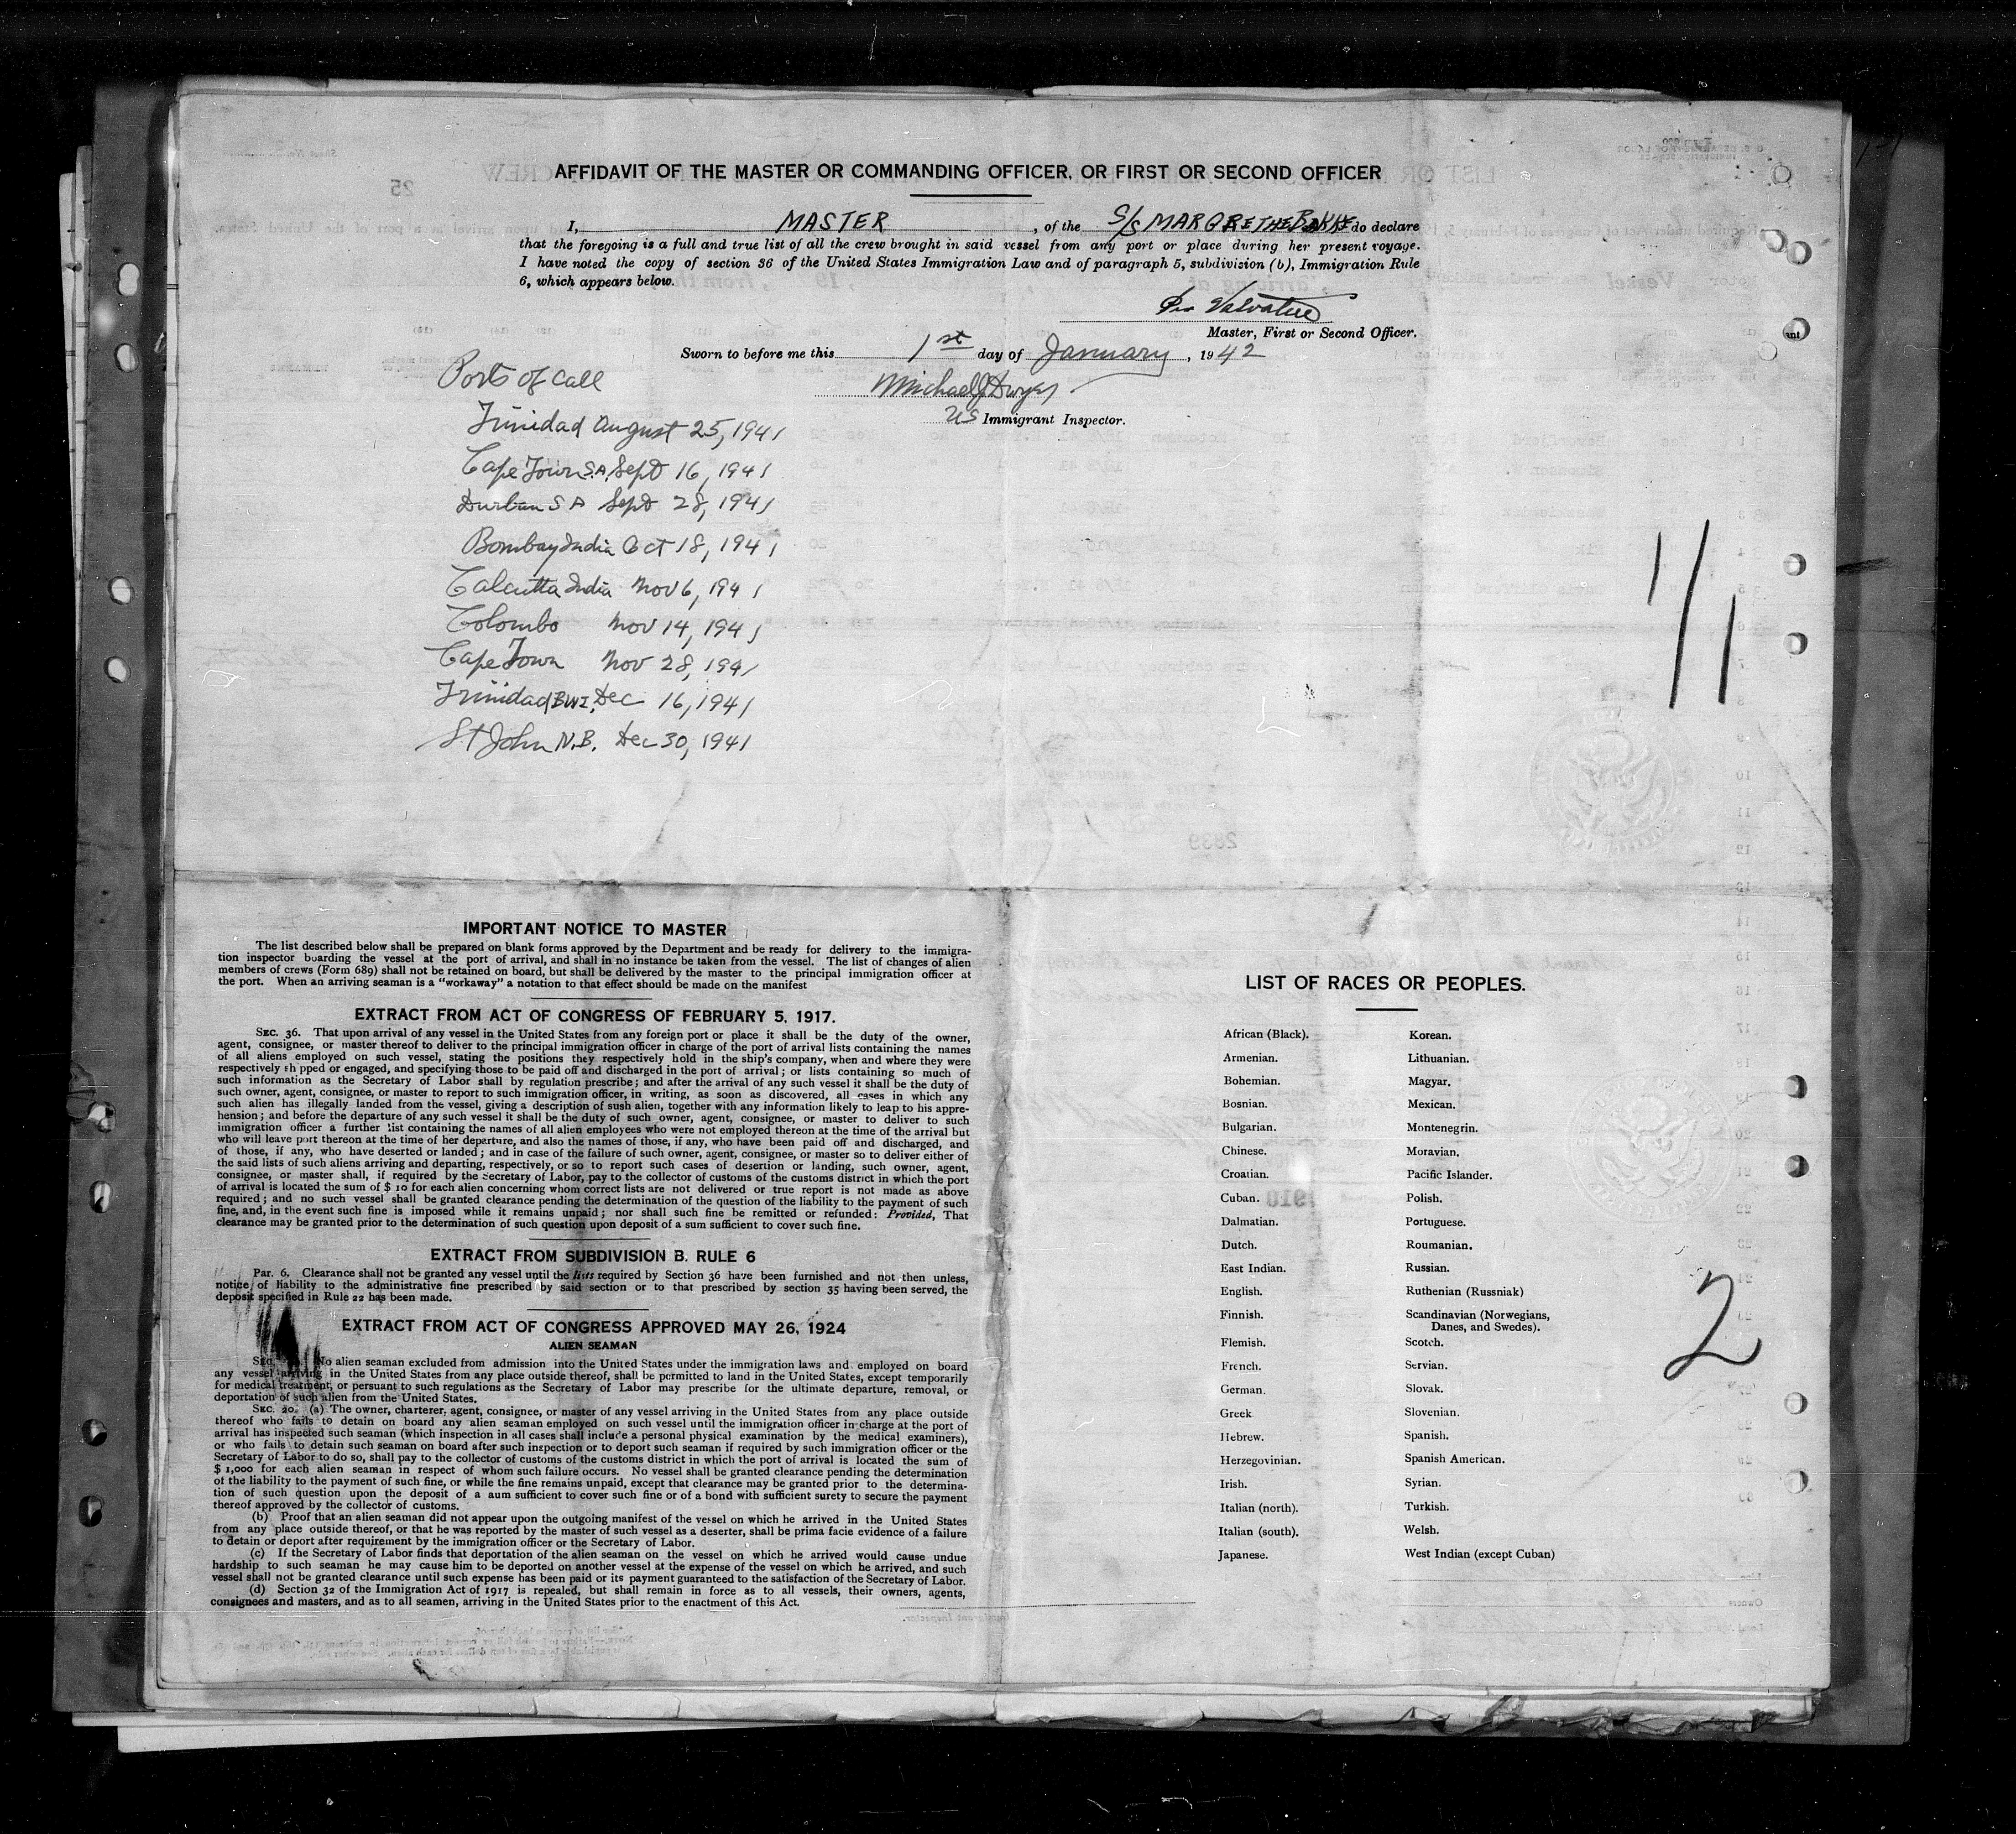 AFFIDAVIT OF THE MASTER OR COMMANDING OFFICER, OR FIRST OR SECOND OFFICER
I, MASTER, of the S/S MARGRETHE BAKKE do declare
that the foregoing is a full and true list of all the crew brought in said vessel from any port or place during her present voyage.
I have noted the copy of section 36 of the United States Immigration Law and of paragraph 5, subdivision (b), Immigration Rule
6, which appears below.
Master, First or Second Officer.
Sworn to before me this 1st day of January, 1942
Michael J Dwyer
US Immigrant Inspector.
Ports of Call
Trinidad August 25, 1941
Cape Town S.A. Sept 16, 1941
Durban S A Sept 28, 1941
Bombay India Oct 18, 1941
Calcutta India Nov 6, 1941
Colombo Nov 14, 1941
Cape Town Nov 28, 1941
Trinidad BWI. Dec 16, 1941
St John N.B. Dec 30, 1941
1/1
IMPORTANT NOTICE TO MASTER
The list described below shall be prepared on blank forms approved by the Department and be ready for delivery to the immigra-
tion inspector boarding the vessel at the port of arrival, and shall in no instance be taken from the vessel. The list of changes of alien
members of crews (Form 689) shall not be retained on board, but shall be delivered by the master to the principal immigration officer at
the port. When an arriving seaman is a "workaway" a notation to that effect should be made on the manifest
EXTRACT FROM ACT OF CONGRESS OF FEBRUARY 5, 1917.
SEC. 36. That upon arrival of any vessel in the United States from any foreign port or place it shall be the duty of the owner,
agent, consignee, or master thereof to deliver to the principal immigration officer in charge of the port of arrival lists containing the names
of all aliens employed on such vessel, stating the positions they respectively hold in the ship's company, when and where they were
respectively sh pped or engaged, and specifying those to be paid off and discharged in the port of arrival; or lists containing so much of
such information as the Secretary of Labor shall by regulation prescribe; and after the arrival of any such vessel it shall be the duty of
such owner, agent, consignee, or master to report to such immigration officer, in writing, as soon as discovered, all cases in which any
such alien has illegally landed from the vessel, giving a description of sush alien, together with any information likely to leap to his appre-
hension; and before the departure of any such vessel it shall be the duty of such owner, agent, consignee, or master to deliver to such
immigration officer a further list containing the names of all alien employees who were not employed thereon at the time of the arrival but
who will leave port thereon at the time of her departure, and also the names of those, if any, who have been paid off and discharged, and
of those, if any, who have deserted or landed; and in case of the failure of such owner, agent, consignee, or master so to deliver either of
the said lists of such aliens arriving and departing, respectively, or so to report such cases of desertion or landing, such owner, agent,
consignee, or master shall, if required by the Secretary of Labor, pay to the collector of customs of the customs district in which the port
of arrival is located the sum of $ 10 for each alien concerning whom correct lists are not delivered or true report is not made as above
required; and no such vessel shall be granted clearance pending the determination of the question of the liability to the payment of such
fine, and, in the event such fine is imposed while it remains unpaid; nor shall such fine be remitted or refunded: Provided, That
clearance may be granted prior to the determination of such question upon deposit of a sum sufficient to cover such fine.
EXTRACT FROM SUBDIVISION B. RULE 6
Par. 6. Clearance shall not be granted any vessel until the lists required by Section 36 have been furnished and not then unless,
notice of liability to the administrative fine prescribed by said section or to that prescribed by section 35 having been served, the
deposit specified in Rule 22 has been made.
EXTRACT FROM ACT OF CONGRESS APPROVED MAY 26, 1924
ALIEN SEAMAN
SEC. No alien seaman excluded from admission into the United States under the immigration laws and employed on board
any vessel arriving in the United States from any place outside thereof, shall be permitted to land in the United States, except temporarily
for medical treatment, or persuant to such regulations as the Secretary of Labor may prescribe for the ultimate departure, removal, or
deportation of such alien from the United States.
SEC. 20. (a) The owner, charterer, agent, consignee, or master of any vessel arriving in the United States from any place outside
thereof who fails to detain on board any alien seaman employed on such vessel until the immigration officer in charge at the port of
arrival has inspected such seaman (which inspection in all cases shall include a personal physical examination by the medical examiners),
or who fails to detain such seaman on board after such inspection or to deport such seaman if required by such immigration officer or the
Secretary of Labor to do so, shall pay to the collector of customs of the customs district in which the port of arrival is located the sum of
$ 1,000 for each alien seaman in respect of whom such failure occurs. No vessel shall be granted clearance pending the determination
of the liability to the payment of such fine, or while the fine remains unpaid, except that clearance may be granted prior to the determina-
tion of such question upon the deposit of a aum sufficient to cover such fine or of a bond with sufficient surety to secure the payment
thereof approved by the collector of customs.
(b) Proof that an alien seaman did not appear upon the outgoing manifest of the vessel on which he arrived in the United States
from any place outside thereof, or that he was reported by the master of such vessel as a deserter, shall be prima facie evidence of a failure
to detain or deport after requirement by the immigration officer or the Secretary of Labor.
(c) If the Secretary of Labor finds that deportation of the alien seaman on the vessel on which he arrived would cause undue
hardship to such seaman he may cause him to be deported on another vessel at the expense of the vessel on which he arrived, and such
vessel shall not be granted clearance until such expense has been paid or its payment guaranteed to the satisfaction of the Secretary of Labor.
(d) Section 32 of the Immigration Act of 1917 is repealed, but shall remain in force as to all vessels, their owners, agents,
consignees and masters, and as to all seamen, arriving in the United States prior to the enactment of this Act.
LIST OF RACES OR PEOPLES.
African (Black).
Armenian.
Bohemian.
Bosnian.
Bulgarian.
Chinese.
Croatian.
Cuban.
Dalmatian.
Dutch.
East Indian.
English.
Finnish.
Flemish.
French.
German.
Greek
Hebrew.
Herzegovinian.
Irish.
Italian (north).
Italian (south).
Japanese.
Korean.
Lithuanian.
Magyar.
Mexican.
Montenegrin.
Moravian.
Pacific Islander.
Polish.
Portuguese.
Roumanian.
Russian.
Ruthenian (Russniak)
Scandinavian (Norwegians,
Danes, and Swedes).
Scotch.
Servian.
Slovak.
Slovenian.
Spanish.
Spanish American.
Syrian.
Turkish.
Welsh.
West Indian (except Cuban)
2